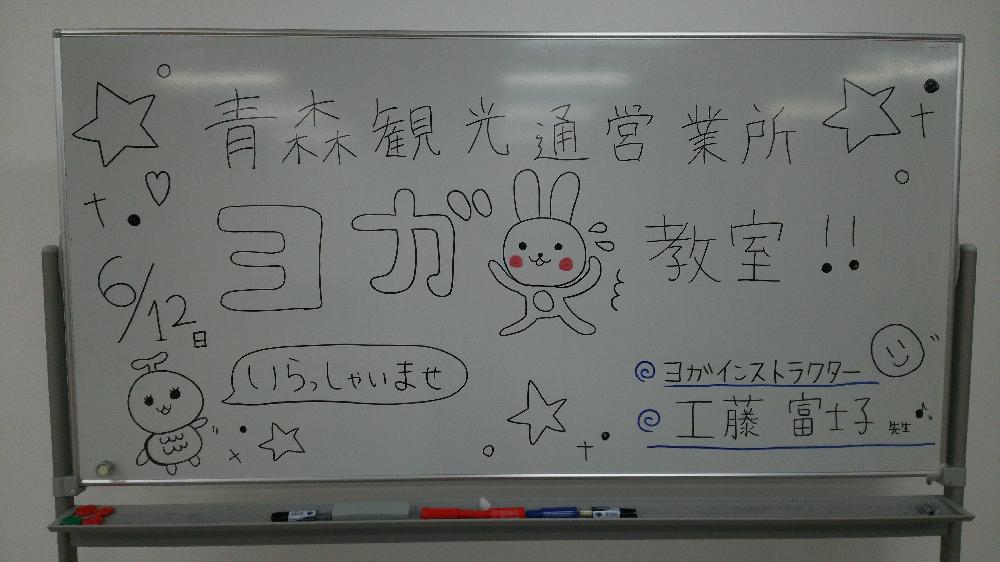 青森観光通営業所
ヨガ教室!!
6/12日
いらっしゃいませ
ヨガインストラクター
工藤 富士子 先生